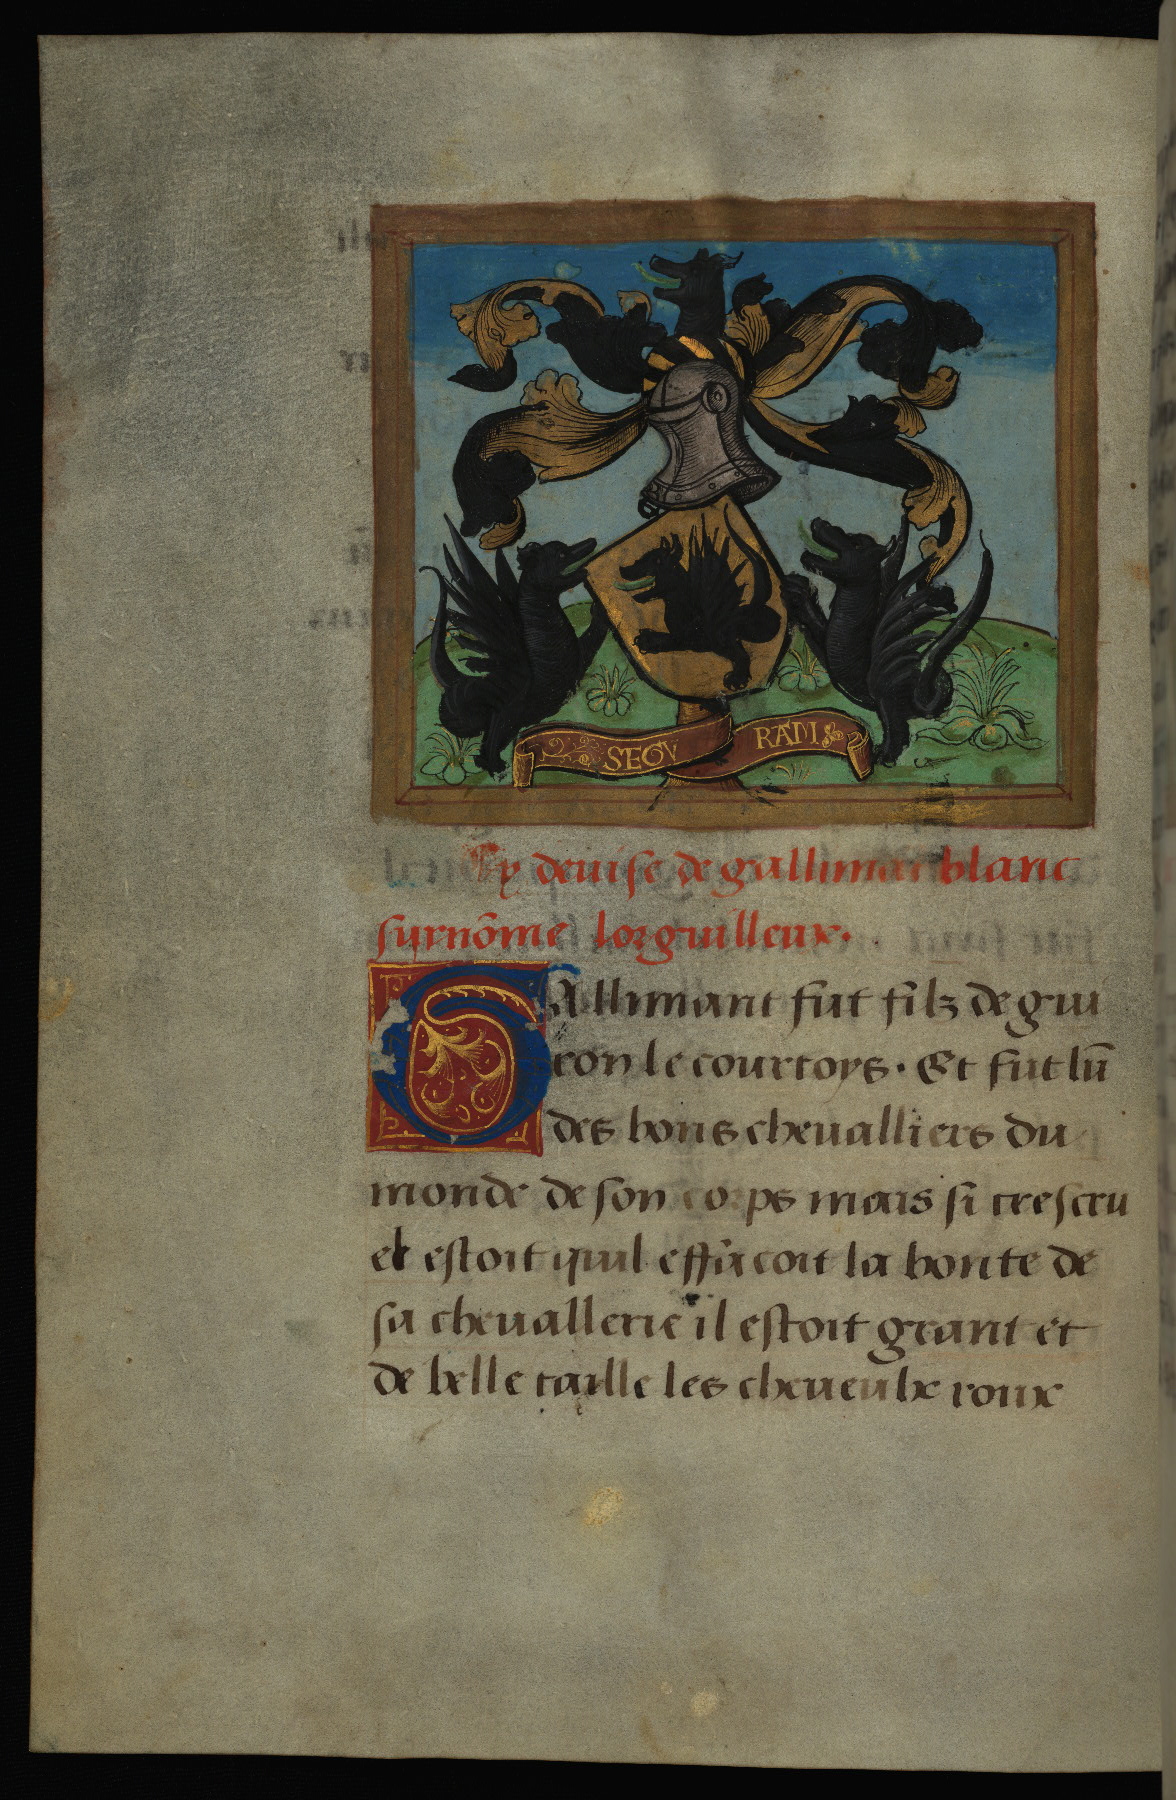 SEQV RAM
Cy deuise de gallimar blanc
surnõme lorguilleux.
Gallimant fut filz de gui
ron le courtoys. Et fut lũ
des bons cheualliers du
monde de son corps mais si trescru
el estoit quil effacoit la bonte de
sa cheuallerie il estoit grant et
de belle taille les cheueulx roux